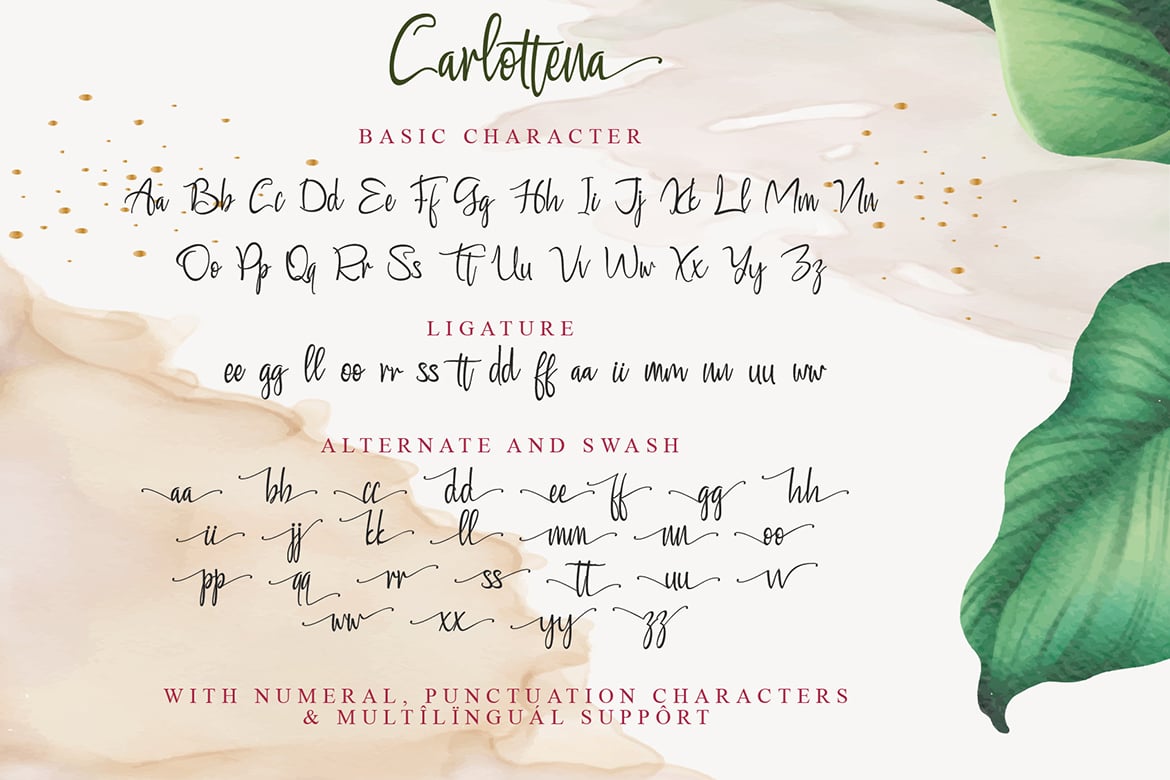 Carlottena
BASIC CHARACTER
Aa Bb Cc Dd Ee Ff Gg Hh Ii Jj Kk Ll Mm Nn
Oo Pp Qq Rr Ss Tt Uu Vv Ww Xx Yy Zz
LIGATURE
ee gg ll oo rr ss tt dd ff aa ii mm nn uu ww
ALTERNATE AND SWASH
aa bb cc dd ee ff gg hh
ii jj kk ll mm nn oo
pp qq rr ss tt uu vv
ww xx yy zz
WITH NUMERAL, PUNCTUATION CHARACTERS
& MULTÎLÏNGUÁL SUPPÔRT